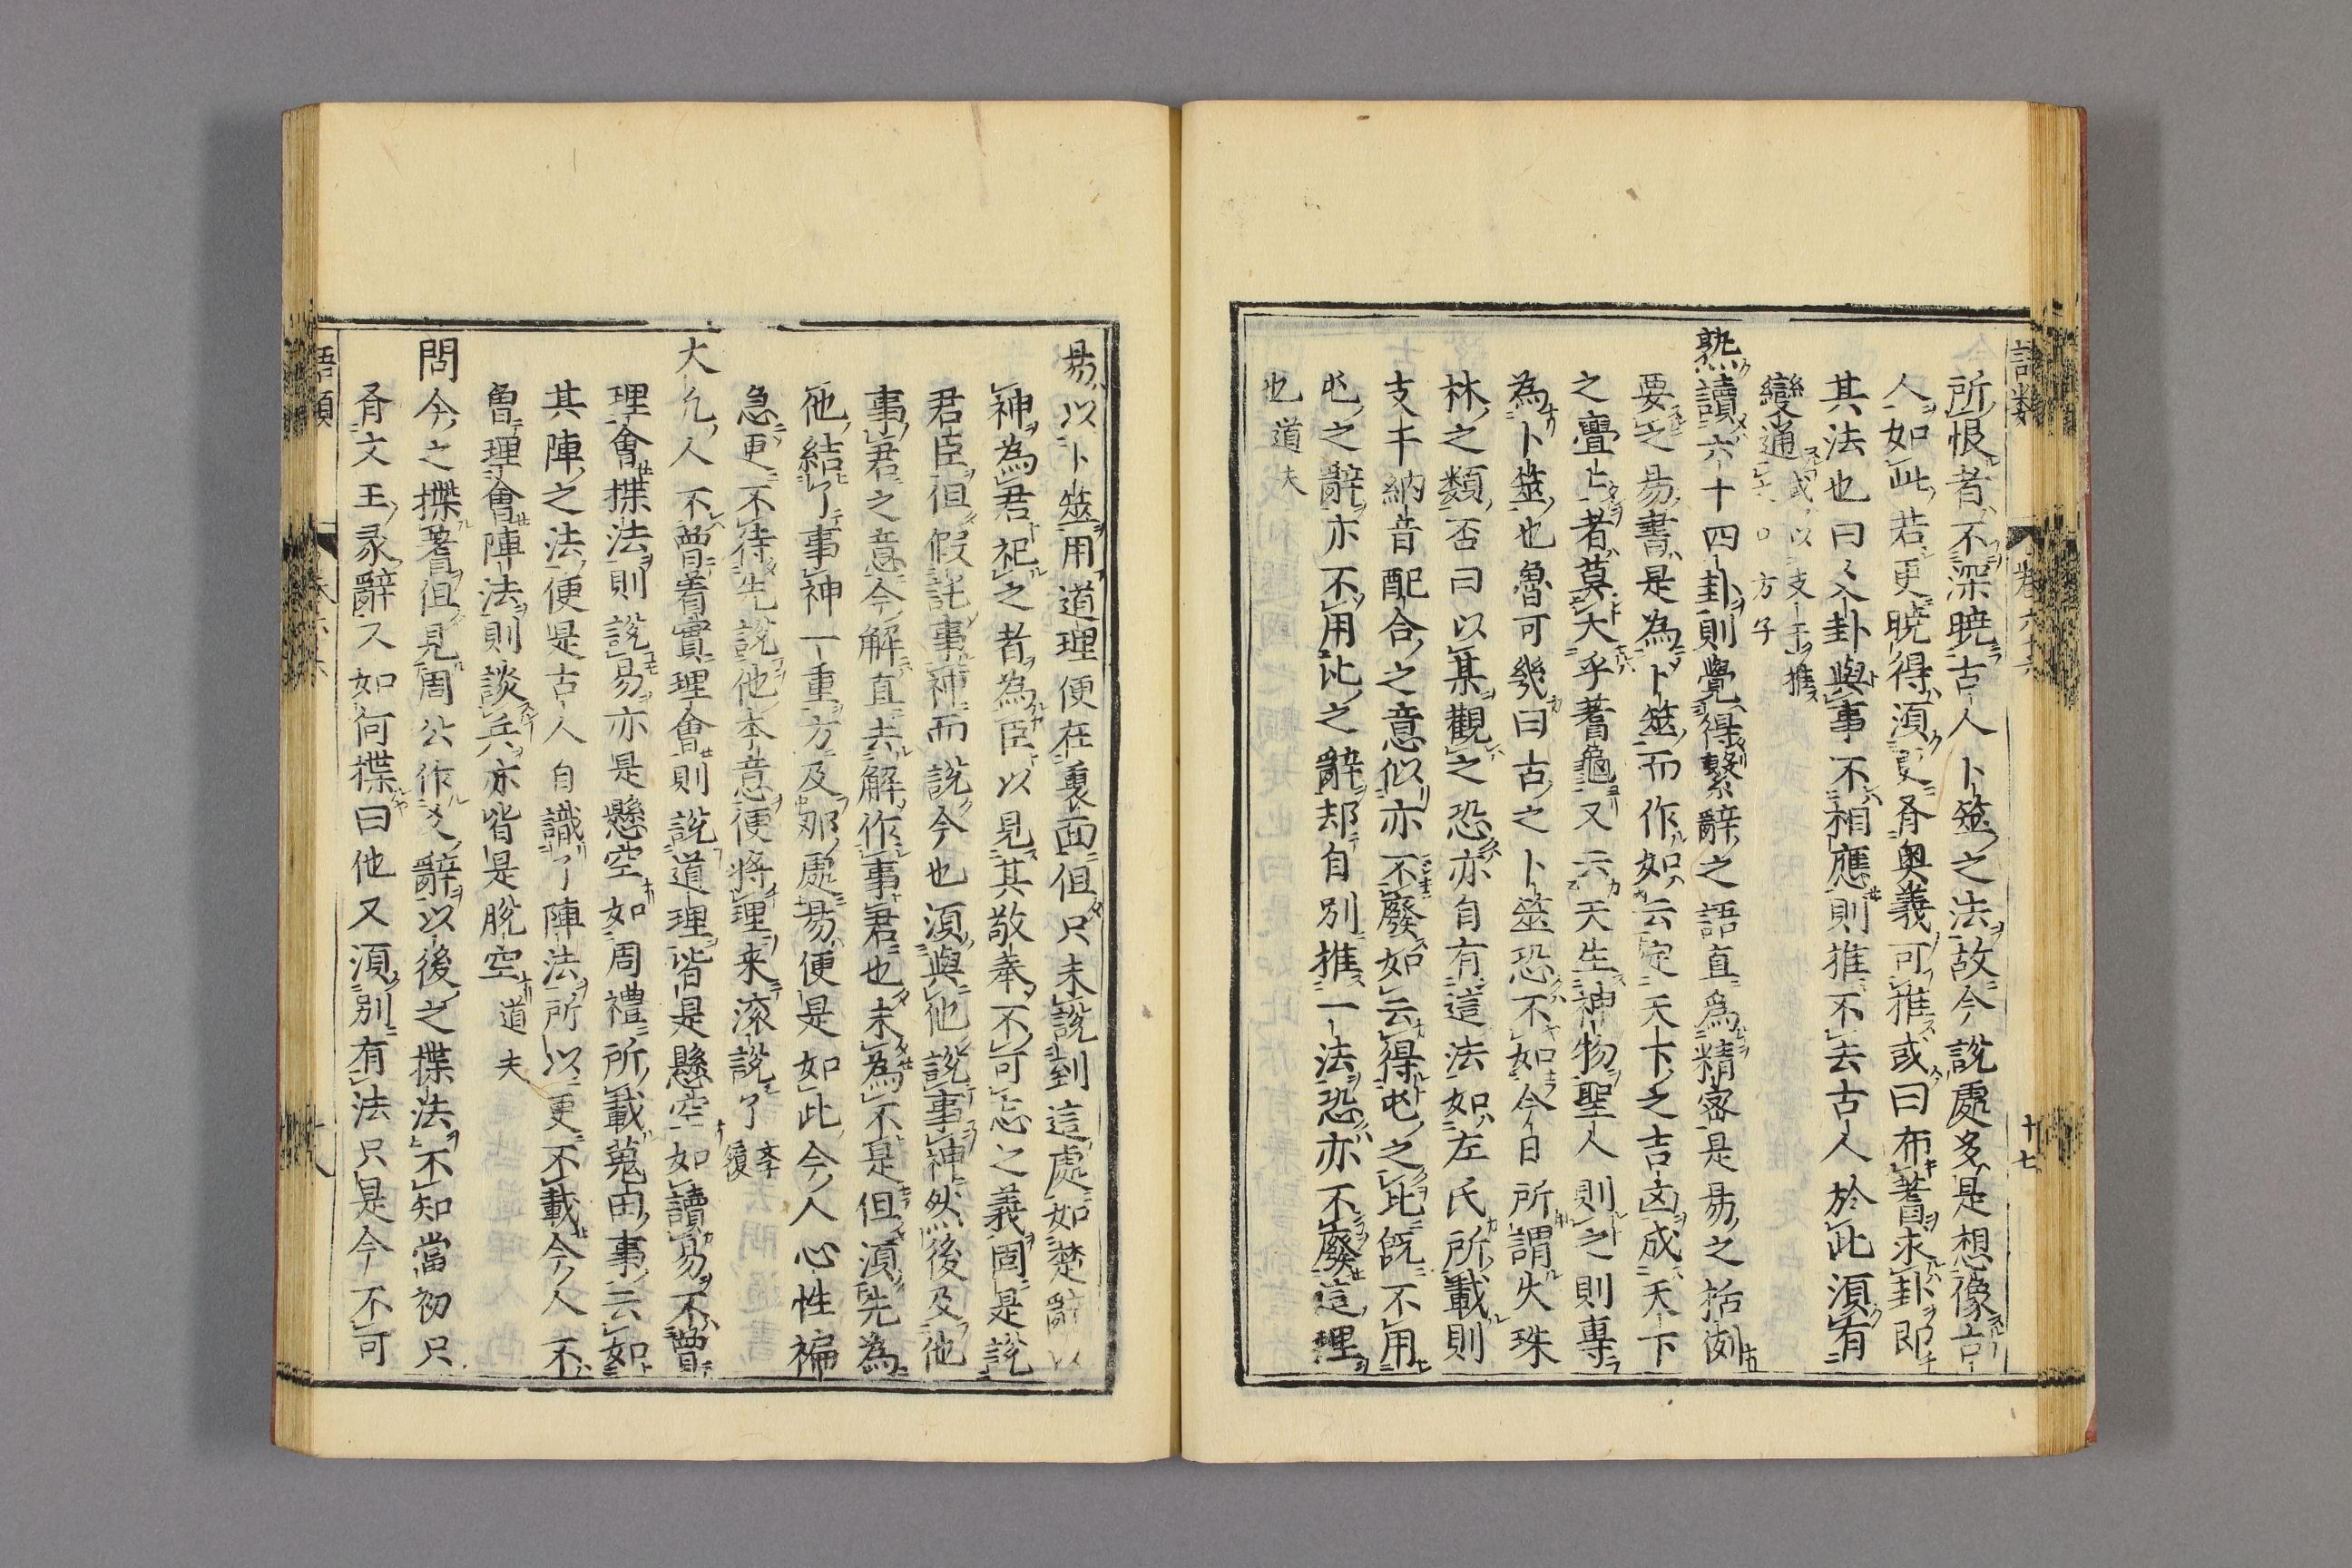 語類 卷六十六 十七
所恨者不深曉古人卜筮之法故今說處多是想像古
人如此若更曉得須更有奧義可推或曰布蓍求卦即
其法也曰爻卦與事不相應則推不去古人於此須有
變通或以支干推之 方子
熟讀六十四卦則覺得繫辭之語直為精密是易之括例
要之易書是為卜筮而作如云定天下之吉凶成天下
之亹亹者莫大乎蓍龜又云天生神物聖人則之則專
為卜筮也魯可幾曰古之卜筮恐不如今日所謂火珠
林之類否曰以某觀之恐亦自有這法如左氏所載則
支干納音配合之意似亦不廢如云得屯之比既不用
屯之辭亦不用比之辭却自別推一法恐亦不廢這理
也 道夫
易以卜筮用道理便在裏面但只未說到這處如楚辭以
神為君祀之者為臣以見其敬奉不可忘之義固是說
君臣但假託事神而說今也須與他說事神然後及他
事君之意今解直去解作事君也未為不是但須先為
他結了事神一重方及那處易便是如此今人心性褊
急更不待先說他本意便將理來滾說了 學履
大凡人不曾着實理會則說道理皆是懸空如讀易不曾
理會揲法則說易亦是懸空如周禮所載蒐田事云如
其陣之法便是古人自識了陣法所以更不載今人不
曾理會陣法則談兵亦皆是脫空 道夫
問今之揲蓍但見周公作爻辭以後之揲法不知當初只
有文王彖辭又如何揲曰他又須別有法只是今不可
語類 十八